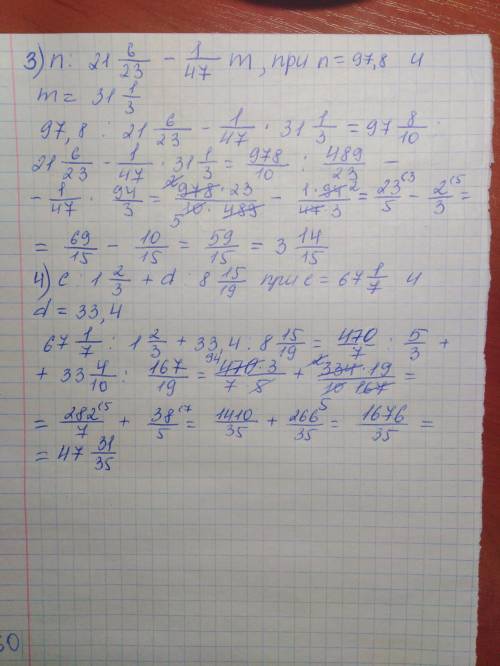 3) n : 21 6/23 − 1/47 m, при n = 97,8 и
m = 31 1/3
97,8 : 21 6/23 − 1/47 · 31 1/3 = 97 8/10 :
21 6/23 − 1/47 · 31 1/3 = 978/10 : 489/23 −
− 1/47 · 94/3 = 978 · 23/10 · 489 − 1 · 94/47 · 3 = 23/5 − 2/3 =
= 69/15 − 10/15 = 59/15 = 3 14/15
4) c : 1 2/3 + d : 8 15/19 при c = 67 1/7 и
d = 33,4
67 1/7 : 1 2/3 + 33,4 : 8 15/19 = 470/7 : 5/3 +
+ 33 4/10 : 167/19 = 470 · 3/7 · 5 + 334 · 19/10 · 167 =
= 282/7 + 38/5 = 1410/35 + 266/35 = 1676/35 =
= 47 31/35